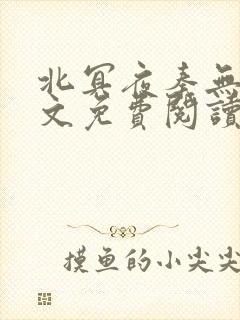 北冥夜奏無
文免費閱讀
摸鱼的小尖尖